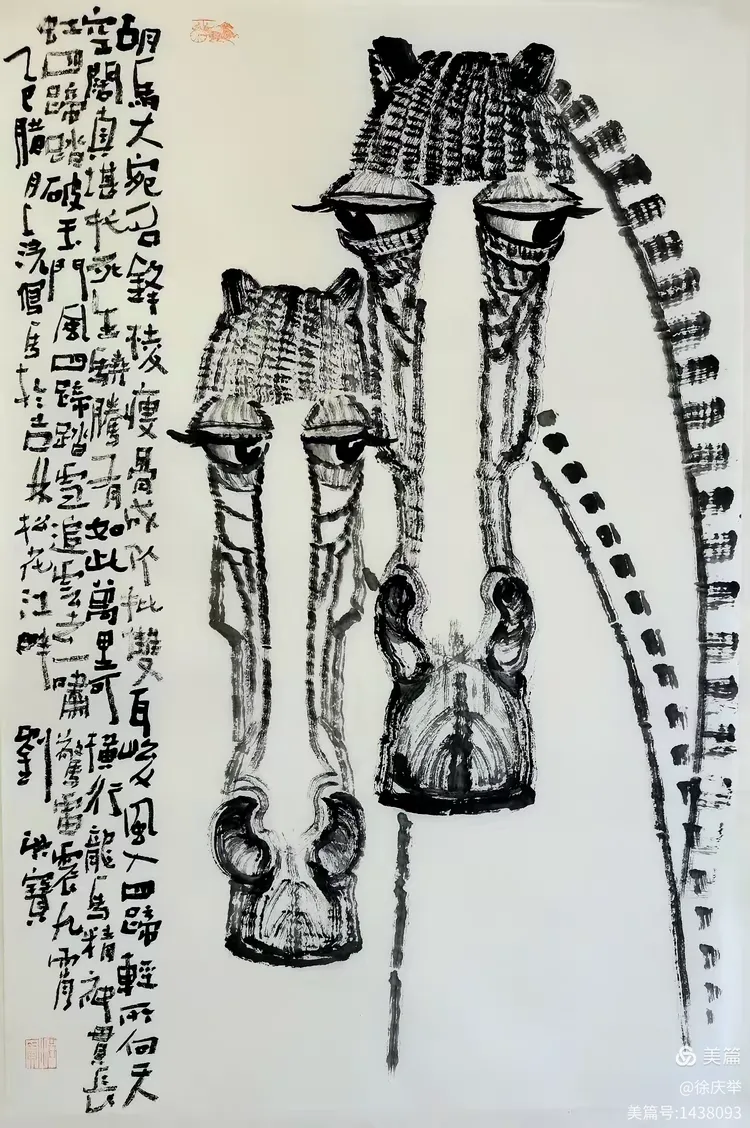 胡馬大宛名鋒稜瘦骨成竹批雙耳峻風入四蹄輕所向天
空闊真堪托死生驍騰有如此萬里可橫行龍馬精神貫長
虹四蹄踏破玉門風四蹄踏雪追雲去一嘯驚雷震九霄
乙巳臘月上浣馬於吉林松花江畔 劉洪寶
美篇
@徐庆举
美篇号:1438093